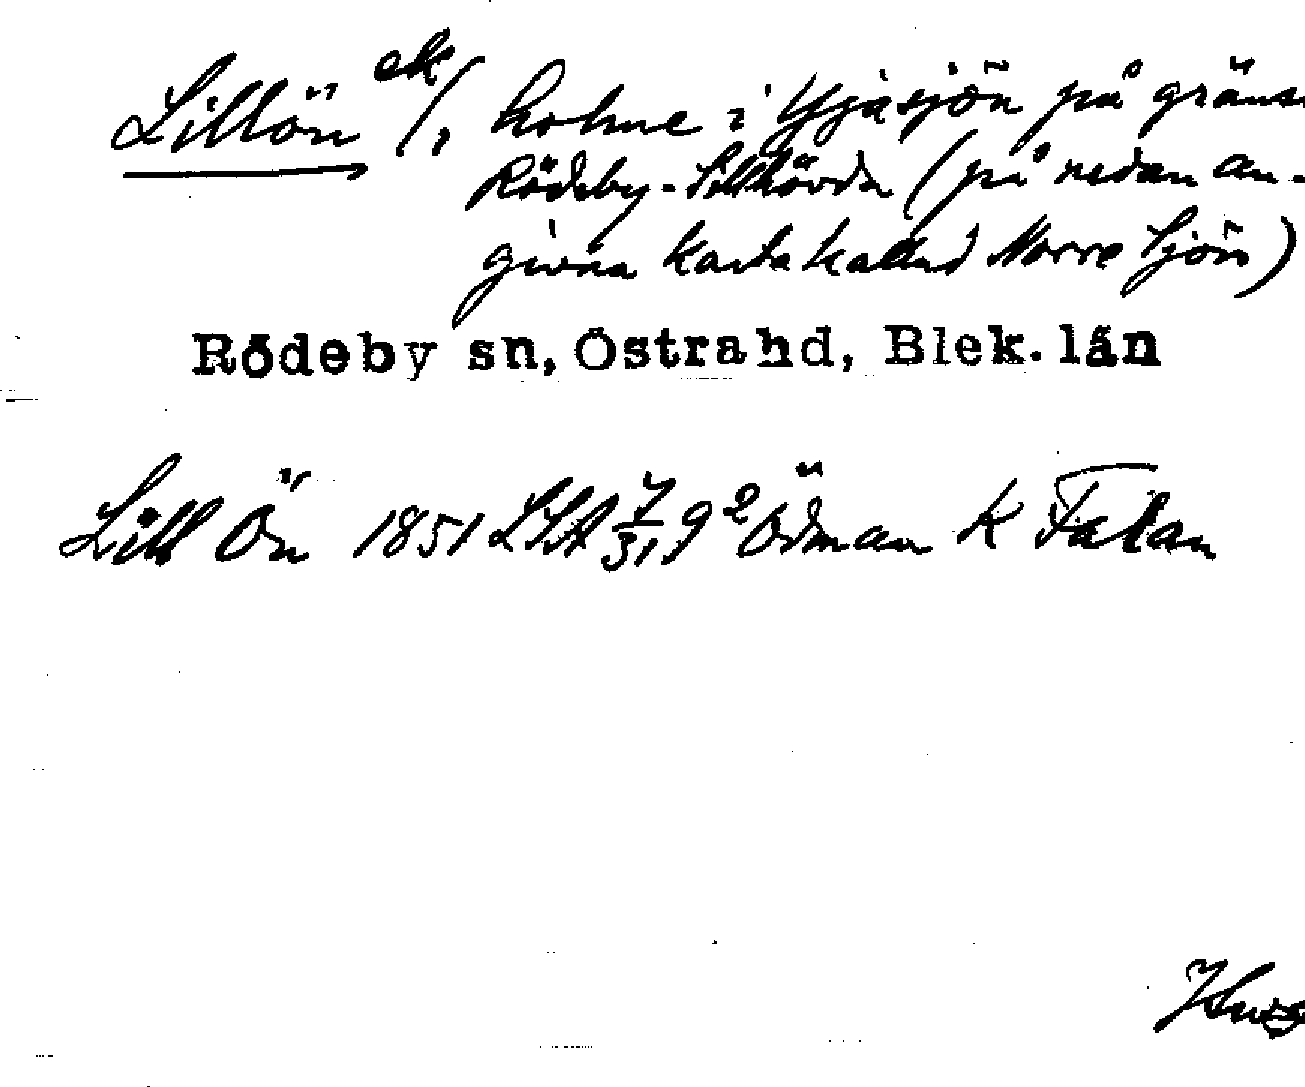 Lillön ek/, holme i Yjasjön på gräns
Rödeby-Sillhövda (på nedan an-
givna karta kallad Norre Sjön)
Rödeby sn, Östra hd, Blek. län
Lill Ön 1851 LSA 7/31, 9² Ödman K Falan